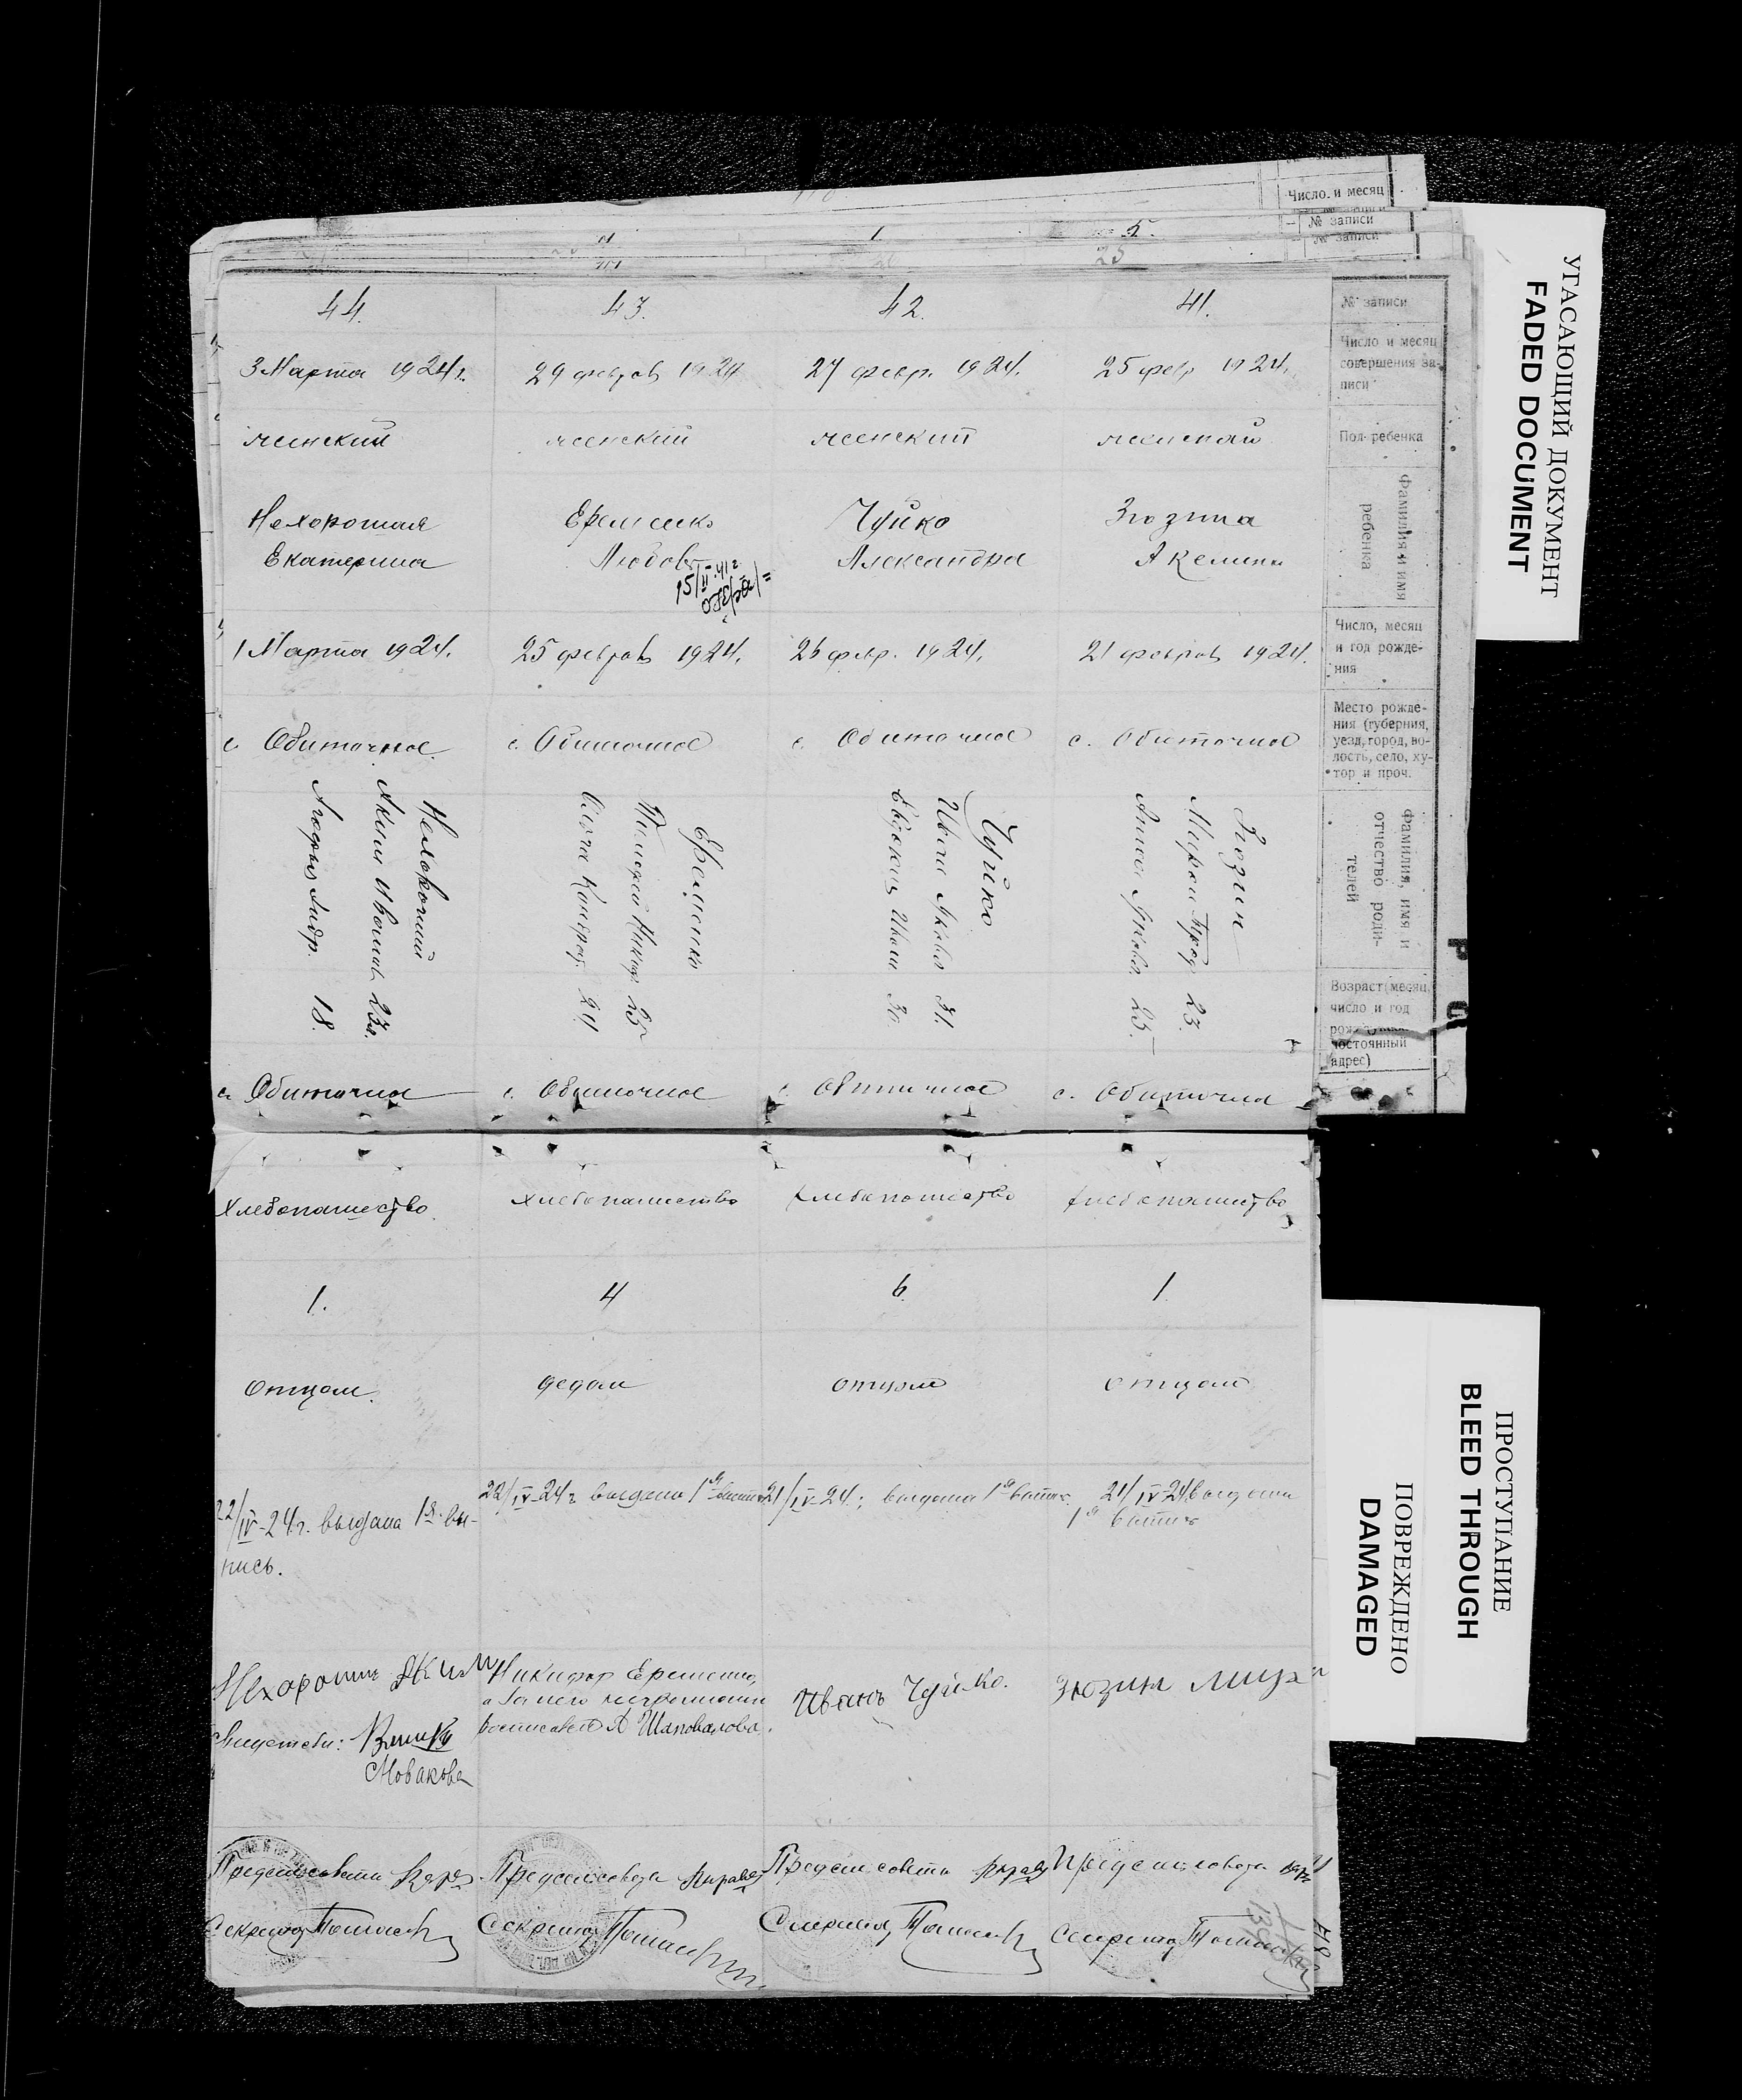 Число и месяц
№ записи
№ записи
5.
25
44.
43.
42.
41.
№ записи
3 Марта 1924г.
29 февраля 1924
27 февр. 1924.
25 февр 1924.
Число и месяц
совершения за-
писи
женский
женский
женский
женский
Пол ребенка
Нехорошая
Екатерина
Еременко
Любовь
Чуйко
Александра
Зюзина
Акелина
Фамилия и имя
ребенка
1 Марта 1924.
25 февраля 1924.
26 февр. 1924.
21 февраля 1924.
Число, месяц
и год рожде-
ния
с. Обиточное
с. Обиточное
с. Обиточное
с. Обиточное
Место рожде-
ния (губерния,
уезд, город, во-
лость, село, ху-
тор и проч.
Нехороший
Аким Иванов. 23л.
Андр. 18.
Еременко
24
Чуйко
Иван Яковл 31.
Евдокия Иван
Зюзин
Мирон 23.
Яковл 25.
Фамилия, имя и
отчество роди-
телей
Возраст (месяц,
число и год
постоянный
адрес)
с. Обиточное
с. Обиточное
с. Обиточное
с. Обиточное
Хлебопашество
Хлебопашество
Хлебопашество
Хлебопашество
1.
4
6
1
отцом.
дедом
отцом
отцом
22/IV-24г. выдана 1я вы-
пись.
22/IV-24г выдана 1я выпись
21/IV-24. выдана 1я выпись
21/IV-24 выдана
1я выпись
Нехороший Аким
Свидетели:
Новакова
Никифор Еременко,
а за него неграмотн
росписался А Шаповалова.
Иванъ Чуйко.
Зюзин Мирон
Предсельсовета
Секретар
Предсельсовета
Секретар
Предсельсовета
Секретар
Предсельсовета
Секретар
УГАСАЮЩИЙ ДОКУМЕНТ
FADED DOCUMENT
ПРОСТУПАНИЕ
BLEED THROUGH
ПОВРЕЖДЕНО
DAMAGED